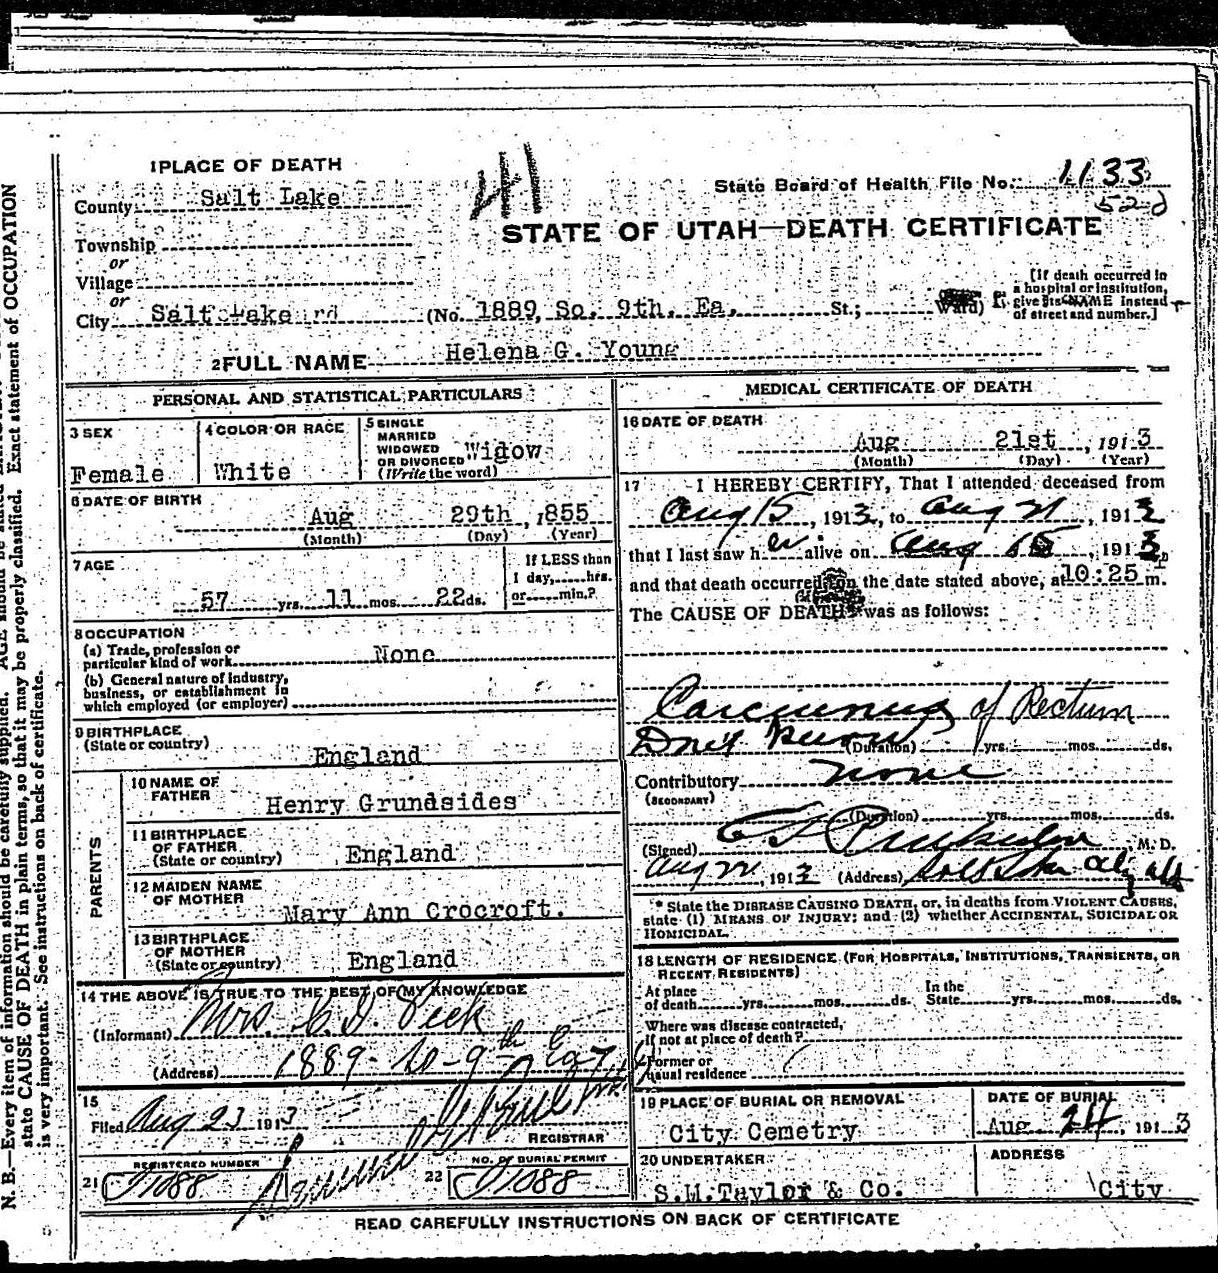 1 PLACE OF DEATH
County Salt Lake
Township
or
Village
or
City Salt Lake
(No. 1889, So. 9th. Ea. St.; Ward)
41
State Board of Health File No. 1133
52d
STATE OF UTAH—DEATH CERTIFICATE
[If death occurred in
a hospital or institution,
give its NAME instead
of street and number.]
2 FULL NAME Helena G. Young
PERSONAL AND STATISTICAL PARTICULARS
3 SEX
Female
4 COLOR OR RACE
White
5 SINGLE
MARRIED
WIDOWED
OR DIVORCED
(Write the word)
Widow
6 DATE OF BIRTH
Aug 29th, 1855
(Month) (Day) (Year)
7 AGE
57 yrs. 11 mos. 22 ds.
If LESS than
1 day,......hrs.
or......min.?
8 OCCUPATION
(a) Trade, profession or
particular kind of work None
(b) General nature of industry,
business, or establishment in
which employed (or employer)
9 BIRTHPLACE
(State or country)
England
PARENTS
10 NAME OF
FATHER
Henry Grundsides
11 BIRTHPLACE
OF FATHER
(State or country)
England
12 MAIDEN NAME
OF MOTHER
Mary Ann Crocroft.
13 BIRTHPLACE
OF MOTHER
(State or country)
England
14 THE ABOVE IS TRUE TO THE BEST OF MY KNOWLEDGE
(Informant) Mrs. C. I. Peck
(Address) 1889 - So - 9th Ea
15
Filed Aug 23 1913
REGISTRAR
21 REGISTERED NUMBER
1088
22 NO. OF BURIAL PERMIT
1088
MEDICAL CERTIFICATE OF DEATH
16 DATE OF DEATH
Aug 21st, 1913
(Month) (Day) (Year)
17 I HEREBY CERTIFY, That I attended deceased from
Aug 15, 1913, to Aug 21, 1913
that I last saw her alive on Aug 15, 1913,
and that death occurred on the date stated above, at 10:25 m.
The CAUSE OF DEATH* was as follows:
Carcinoma of Rectum
Don't Know (Duration) yrs. mos. ds.
Contributory none
(SECONDARY)
(Duration) yrs. mos. ds.
(Signed) M. D.
Aug 22, 1913 (Address) Salt Lake City
* State the DISEASE CAUSING DEATH, or, in deaths from VIOLENT CAUSES,
state (1) MEANS OF INJURY; and (2) whether ACCIDENTAL, SUICIDAL OR
HOMICIDAL.
18 LENGTH OF RESIDENCE (FOR HOSPITALS, INSTITUTIONS, TRANSIENTS, OR
RECENT RESIDENTS)
At place
of death yrs. mos. ds.
In the
State yrs. mos. ds.
Where was disease contracted,
if not at place of death?
Former or
usual residence
19 PLACE OF BURIAL OR REMOVAL
City Cemetry
DATE OF BURIAL
Aug. 24, 1913
20 UNDERTAKER
S.M. Taylor & Co.
ADDRESS
City
READ CAREFULLY INSTRUCTIONS ON BACK OF CERTIFICATE
N. B.—Every item of information should be carefully supplied. AGE should be stated
state CAUSE OF DEATH in plain terms, so that it may be properly classified. Exact statement of OCCUPATION
is very important. See instructions on back of certificate.